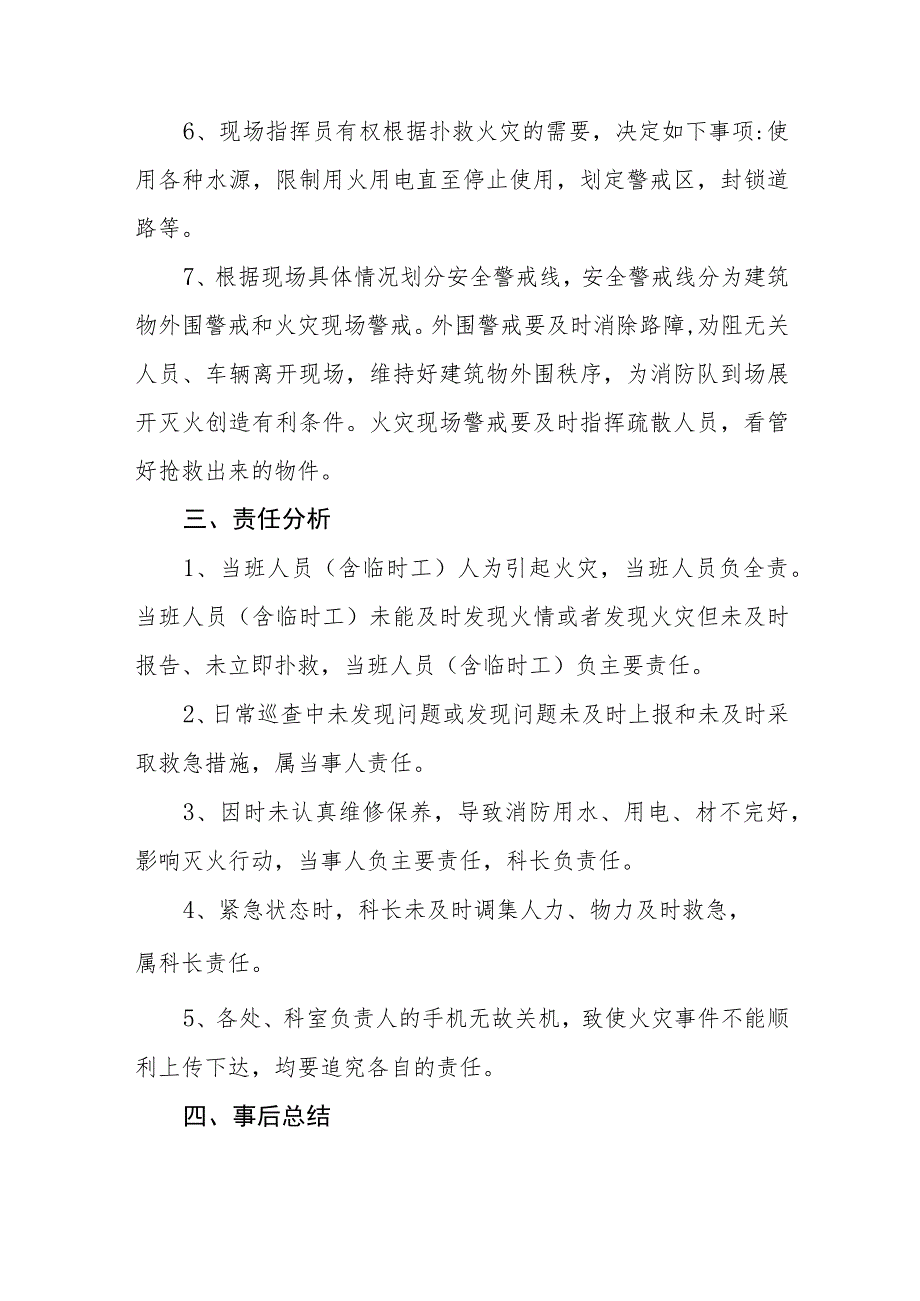 6、现场指挥员有权根据扑救火灾的需要，决定如下事项:使
用各种水源，限制用火用电直至停止使用，划定警戒区，封锁道
路等。
7、根据现场具体情况划分安全警戒线，安全警戒线分为建筑
物外围警戒和火灾现场警戒。外围警戒要及时消除路障,劝阻无关
人员、车辆离开现场，维持好建筑物外围秩序，为消防队到场展
开灭火创造有利条件。火灾现场警戒要及时指挥疏散人员，看管
好抢救出来的物件。
三、责任分析
1、当班人员（含临时工）人为引起火灾，当班人员负全责。
当班人员（含临时工）未能及时发现火情或者发现火灾但未及时
报告、未立即扑救，当班人员（含临时工）负主要责任。
2、日常巡查中未发现问题或发现问题未及时上报和未及时采
取救急措施，属当事人责任。
3、因时未认真维修保养，导致消防用水、用电、材不完好，
影响灭火行动，当事人负主要责任，科长负责任。
4、紧急状态时，科长未及时调集人力、物力及时救急，
属科长责任。
5、各处、科室负责人的手机无故关机，致使火灾事件不能顺
利上传下达，均要追究各自的责任。
四、事后总结